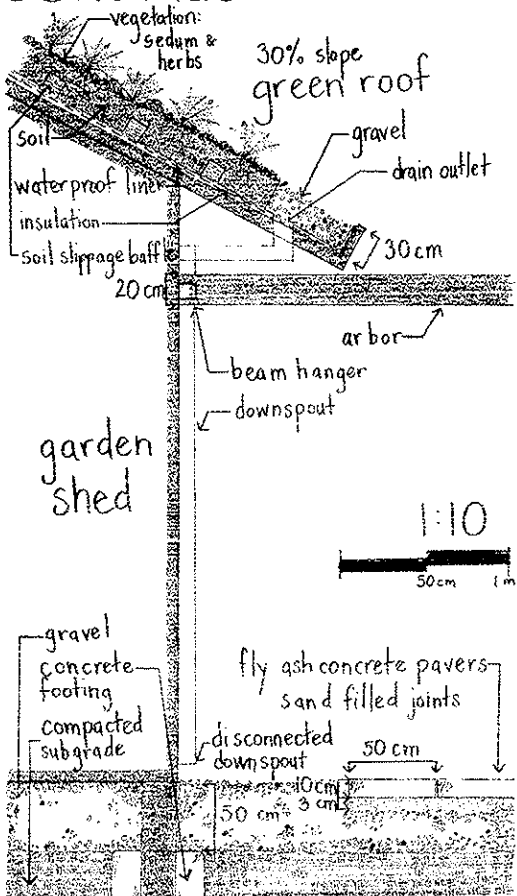 vegetation:
sedum &
herbs
30% slope
green roof
soil
gravel
drain outlet
waterproof liner
insulation
soil slippage baffle
30 cm
20 cm
arbor
beam hanger
downspout
garden
shed
1:10
50 cm 1 m
gravel
concrete
footing
compacted
subgrade
fly ash concrete pavers
sand filled joints
disconnected
downspout
50 cm
10 cm
3 cm
50 cm